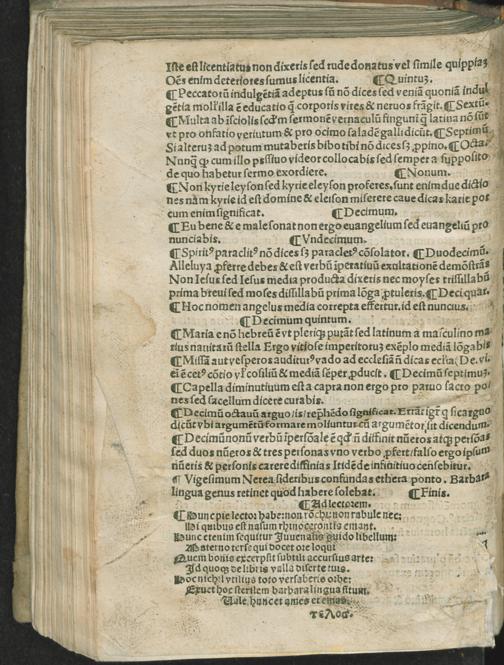 Iste est licentiatus non dixeris sed rude donatus vel simile quippiaʒ
Oēs enim deteriores sumus licentia. ¶ Quintuʒ.
¶ Peccatorū indulgētiā adeptus sū nō dices sed veniā quoniā indul
gētia mollꝰilla ē educatio q̄ corporis vires & neruos frāgit. ¶ Sextū.
¶ Multa ab īscioliis secᵭm sermonē vernaculū finguni q̄ latina nō sūt
vt pro onfatio veriutum & pro ocimo saladē gallidicūt. ¶ Septimū
Si alteruʒ ad potum mutabetis bibo tibi nō dices sʒ ꝓpino. ¶ Octa.
Nunq̄ ꝙ cum illo pssīuo videor collocabis sed semper a supposito
de quo habetur sermo exordiere. ¶ Nonum.
¶ Non kyrie leyson sed kyrie eleyson proferes, sunt enim due dictio
nes nā kyrie id est domine & eleison miserere caue dicas karie por
cum enim significat. ¶ Decimum.
¶ Eu bene & e male sonat non ergo euangelium sed euangeliū pro
nunciabis. ¶ Vndecimum.
¶ Spiritꝰ paraclitꝰ nō dices sʒ paracletꝰ cōsolator. ¶ Duodecimū.
Alleluya ꝓferre debes & est verbū īperatiuū exultationē demōstrās
Non Iesus sed Iesus media producta dixeris nec moyses trissillabū
prima breui sed moses dissillabū prima lōga ꝓtuleris. ¶ Deci quar.
¶ Hoc nomen angelus media correpta effertur. id est nuncius.
¶ Decimum quintum.
¶ Maria e nō hebreū ē vt pleriqꝫ putāt sed latinum a masculino ma
rius nauitarū stella Ergo vitiose imperitoruʒ exēplo mediā lōgabis
¶ Missā aut vesperos auditurꝰ vado ad ecclesiā ñ dicas ecclīa (De. vi.
ei ē cetꝰ cōtio vl cōsiliū & mediā sēper ꝓducit. ¶ Decimū septimuʒ.
¶ Capella diminutiuum est a capra non ergo pro paruo sacro po
nes sed sacellum dicere curabis.
¶ Decimū octauū arguo is / rephēdo significat. Errāt igr̄ q sic argno
dicūt vbi argumētū formare moliuntur cū argumētor, sit dicendum.
¶ Decimū nonū verbū īpersōale ē qd ñ diffinit nūeros atqꝫ persōas
sed duos nūeros & tres personas vno verbo ꝓfert / falso ergo ipsum
nūeris & personis carere diffinias Itidē de infinitiuo censebitur.
¶ Vigesimum Nerea sideribus confundas ethera ponto. Barbara
lingua genus retinet quod habere solebat. ¶ Finis.
¶ Ad lectorem.
¶ Hunc pie lector habe: non rōchu: non rabule nec:
Hi quibus est nasum rhinocerontis emant.
Hunc etenim sequitur Iuuenalis guido libellum:
Materno terse qui docet ore loqui
Quem bonis excerpsit subtili accursius arte:
Id quoqꝫ de libris valla diserte tuis.
Hoc nichil vtilius toto versaberis orbe:
Exuet hoc sterilem barbara lingua situm.
Uale. hunc et ames et emas.
τελοσ.